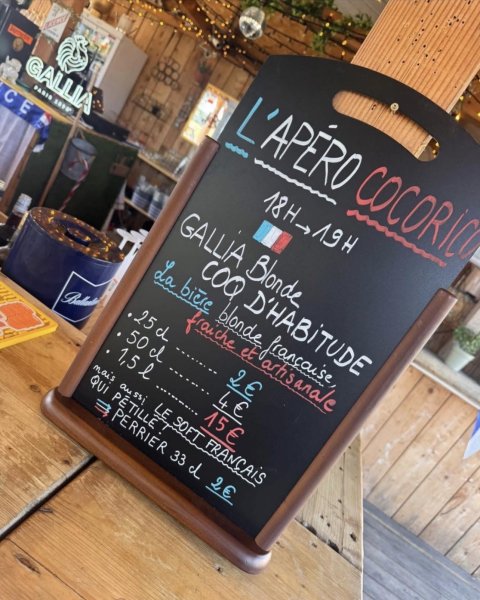 GALLIA
PARIS 1890
L'APÉRO COCORICO
18H → 19H
GALLIA Blonde
COQ D'HABITUDE
La bière blonde française,
fraîche et artisanale
• 25 cl ........ 2€
• 50 cl ........ 4€
• 1,5 l ........ 15€
mais aussi, LE SOFT FRANÇAIS
QUI PÉTILLE !
→ PERRIER 33 cl 2€
Ballantine's